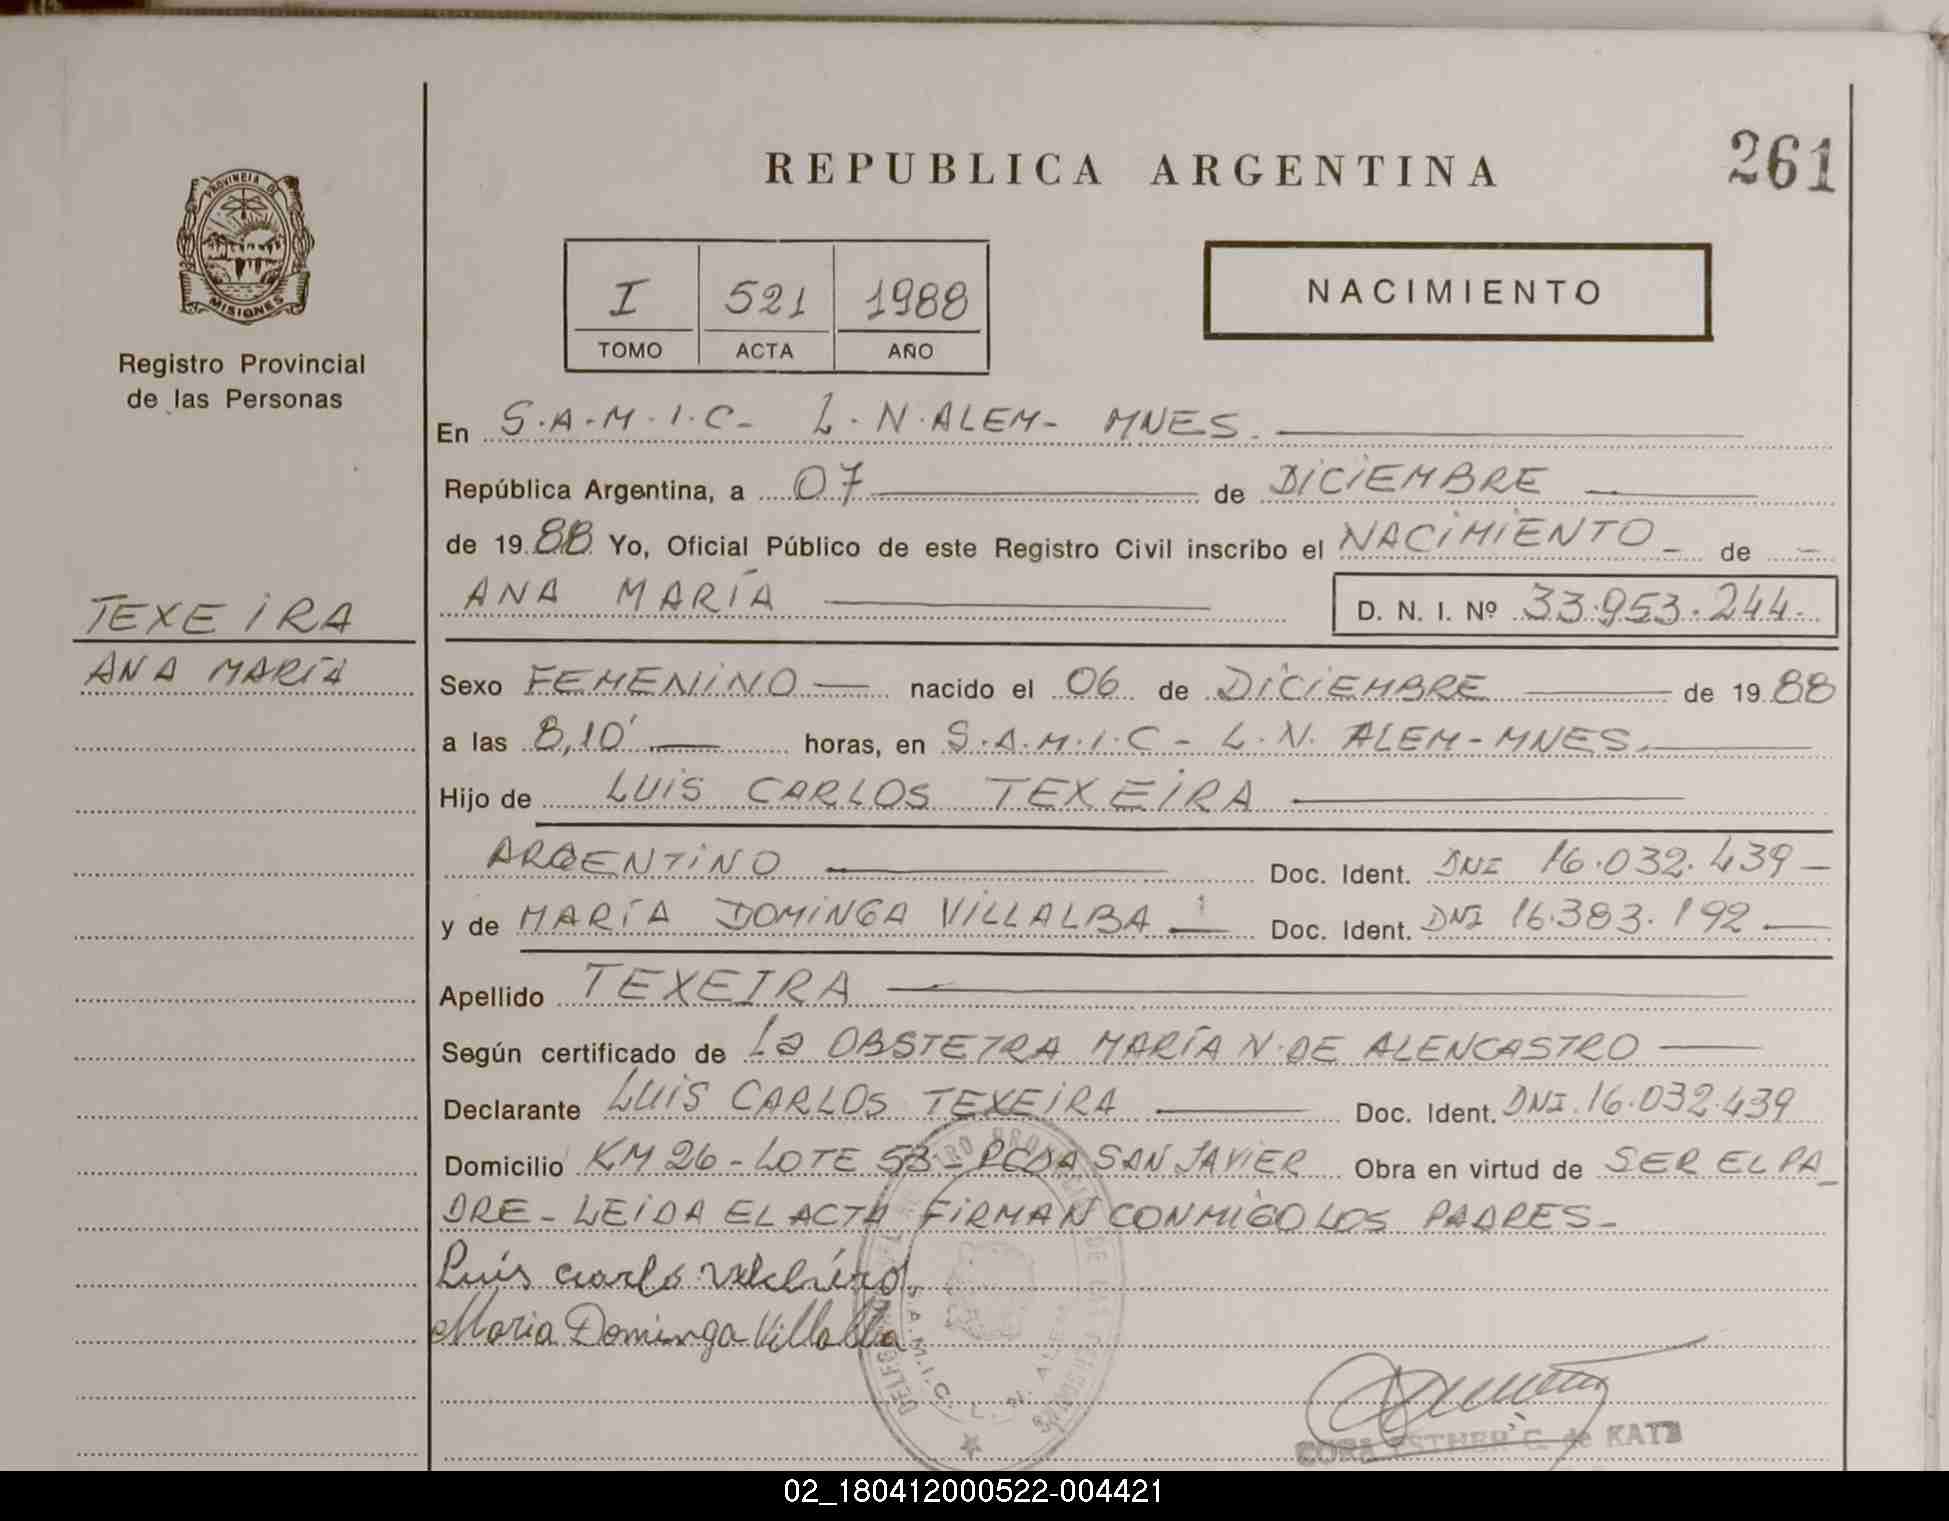 REPUBLICA ARGENTINA
261
PROVINCIA DE
MISIONES
Registro Provincial
de las Personas
I 521 1988
TOMO ACTA AÑO
NACIMIENTO
En S.A.M.I.C- L.N.ALEM- MNES.
República Argentina, a 07 de DICIEMBRE
de 1988 Yo, Oficial Público de este Registro Civil inscribo el NACIMIENTO - de -
ANA MARÍA
D. N. I. Nº 33.953.244.
TEXEIRA
ANA MARÍA
Sexo FEMENINO nacido el 06 de DICIEMBRE de 1988
a las 8,10' horas, en S.A.M.I.C- L.N. ALEM-MNES.
Hijo de LUIS CARLOS TEXEIRA
ARGENTINO Doc. Ident. DNI 16.032.439-
y de MARÍA DOMINGA VILLALBA Doc. Ident. DNI 16.383.192
Apellido TEXEIRA
Según certificado de La OBSTETRA MARÍA N. DE ALENCASTRO
Declarante LUIS CARLOS TEXEIRA Doc. Ident. DNI.16.032.439
Domicilio KM 26-LOTE 53-PCDA SAN JAVIER Obra en virtud de SER EL PA_
DRE-LEIDA EL ACTA FIRMAN CONMIGO LOS PADRES-
Luis Carlos
Maria Dominga Villalba
S.A.M.I.C. L.N. ALEM
ESTHER C. de KATZ
02_180412000522-004421